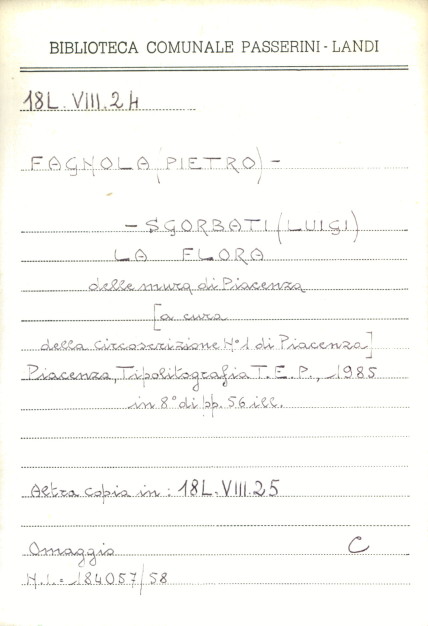 BIBLIOTECA COMUNALE PASSERINI - LANDI
18L. VIII. 24
FAGNOLA (PIETRO) -
- SGORBATI (LUIGI)
LA FLORA
delle mura di Piacenza
[a cura
della circoscrizione N°1 di Piacenza]
Piacenza, Tipolitografia T.E.P., 1985
in 8° di pp. 56 ill.
Altra copia in : 18L. VIII. 25
Omaggio C
N.I. = 184057/58